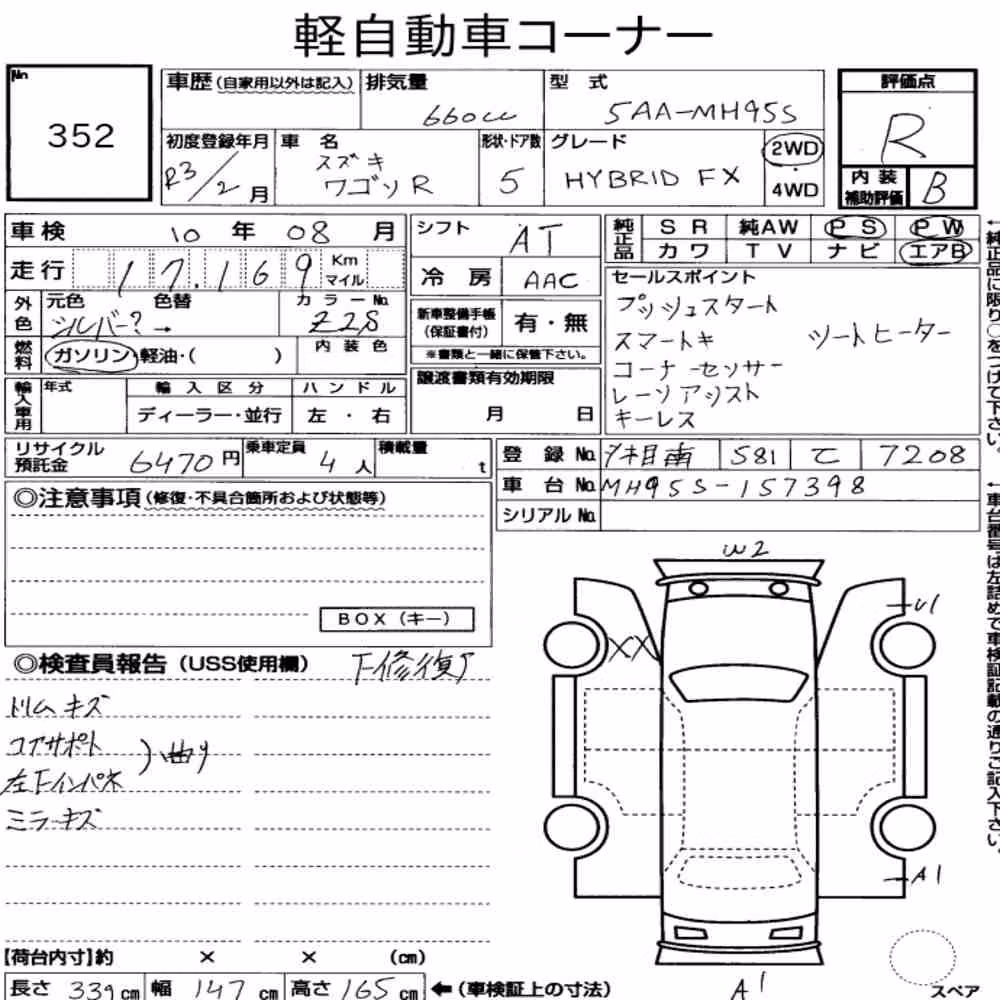 軽自動車コーナー
No.
352
車歴(自家用以外は記入)
排気量
660cc
型 式
5AA-MH95S
評価点
R
初度登録年月
R3/2月
車 名
スズキ
ワゴンR
形状・ドア数
5
グレード
HYBRID FX
2WD
4WD
内装
補助評価
B
車検 10 年 08 月
シフト
AT
純正品
SR 純AW PS PW
カワ TV ナビ エアB
走行 17.169 Km
マイル
冷房 AAC
セールスポイント
プッシュスタート
スマートキ シートヒーター
コーナーセンサー
レーンアシスト
キーレス
外色
元色 色替
シルバー?→
カラーNo.
Z2S
新車整備手帳
(保証書付)
有・無
※書類と一緒に保管下さい。
燃料
ガソリン・軽油・( )
内装色
輸入車用
年式
輸入区分
ディーラー・並行
ハンドル
左・右
譲渡書類有効期限
月 日
リサイクル
預託金
6470円
乗車定員
4人
積載量
t
登録No. 湘南 581 て 7208
車台No. MH95S-157398
シリアルNo.
◎注意事項(修復・不具合箇所および状態等)
BOX(キー)
◎検査員報告(USS使用欄)
トリムキズ
コアサポート
左Fインパネ
曲り
ミラーキズ
W2
U1
XX
A1
A1
スペア
【荷台内寸】約 × × (cm)
長さ 339cm 幅 147cm 高さ 165cm ←(車検証上の寸法)
←純正品に限り○をつけて下さい。
←車台番号は左詰めで車検証記載の通りご記入下さい。